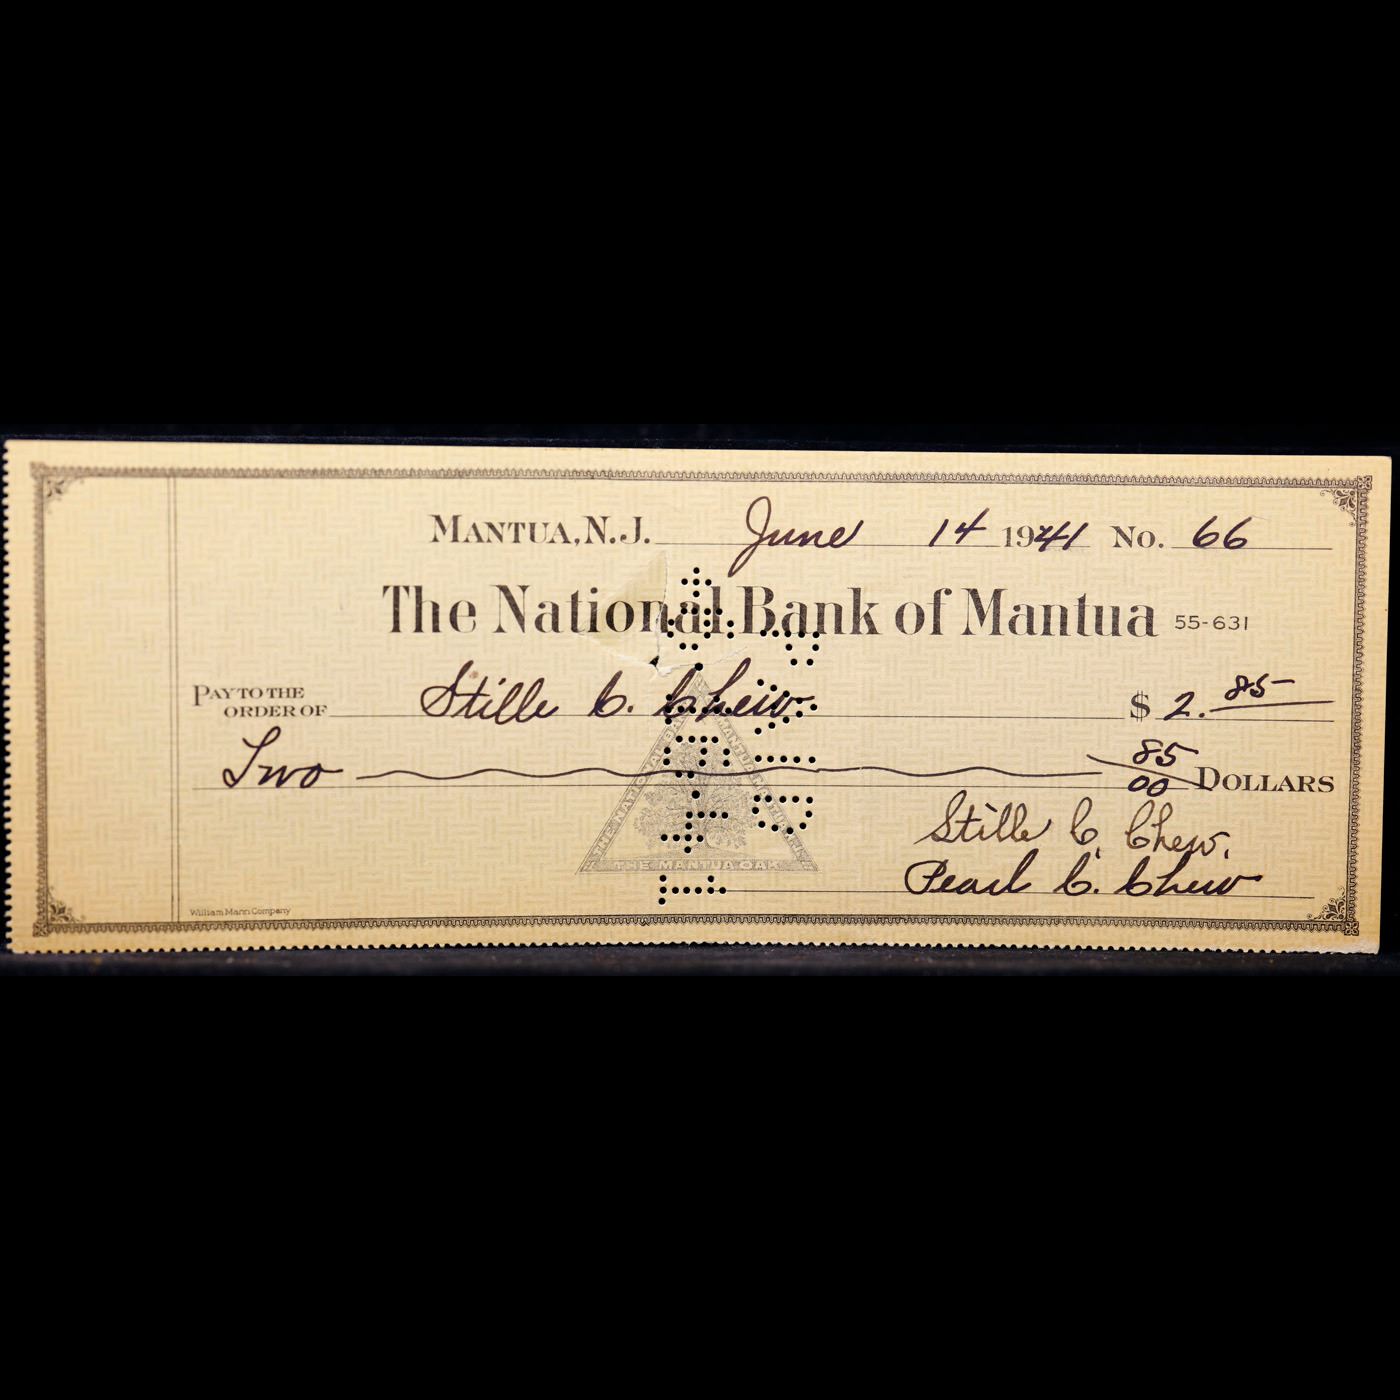 MANTUA, N.J. June 14 1941 No. 66
The National Bank of Mantua 55-631
PAY TO THE ORDER OF Stille C. Chew $ 2. 85
Two 85/00 DOLLARS
THE MANTUA OAK
Stille C. Chew.
Pearl C. Chew
William Mann Company